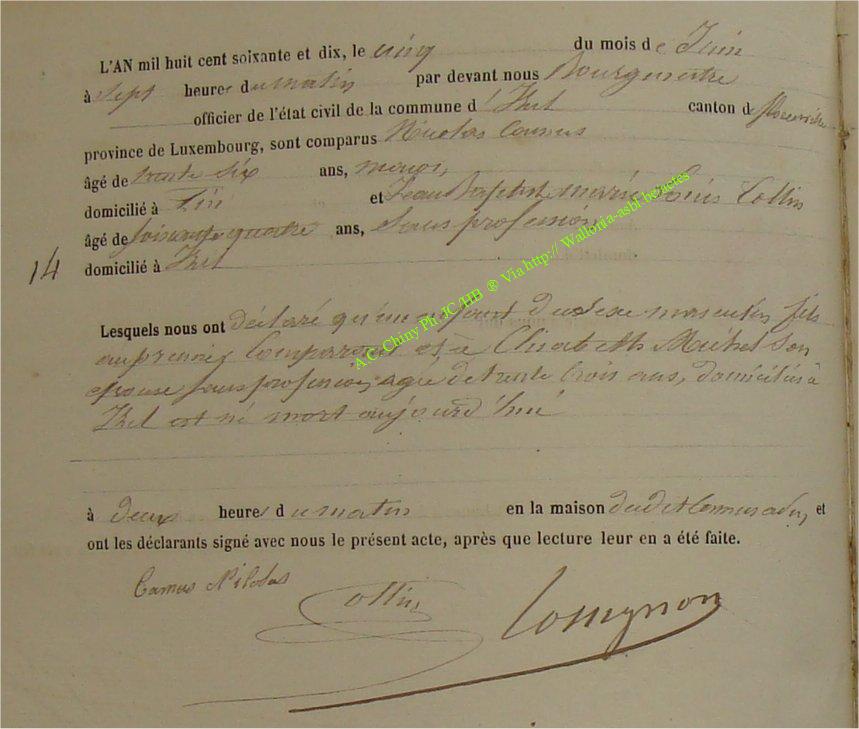 L'AN mil huit cent soixante et dix, le cinq du mois de Juin
à sept heures du matin par devant nous Bourgmestre
officier de l'état civil de la commune d'Izel canton de
province de Luxembourg, sont comparus Nicolas Camus
âgé de trente six ans,
domicilié à et Jean Baptiste marie Louis Collin
âgé de soixante quatre ans, Sans profession
14 domicilié à Izel
Lesquels nous ont déclaré qu'un enfant du sexe masculin fils
au premier Comparant et à Elisabeth Michel son
épouse sans profession, agée de trente trois ans, domiciliés à
Izel est né mort aujourd'hui
à deux heures du matin en la maison dudit Camus à et
ont les déclarants signé avec nous le présent acte, après que lecture leur en a été faite.
Camus Nicolas
Collin
A.C. Chiny Ph JC/HB ® Via http:// Wallonia-asbl.be/actes